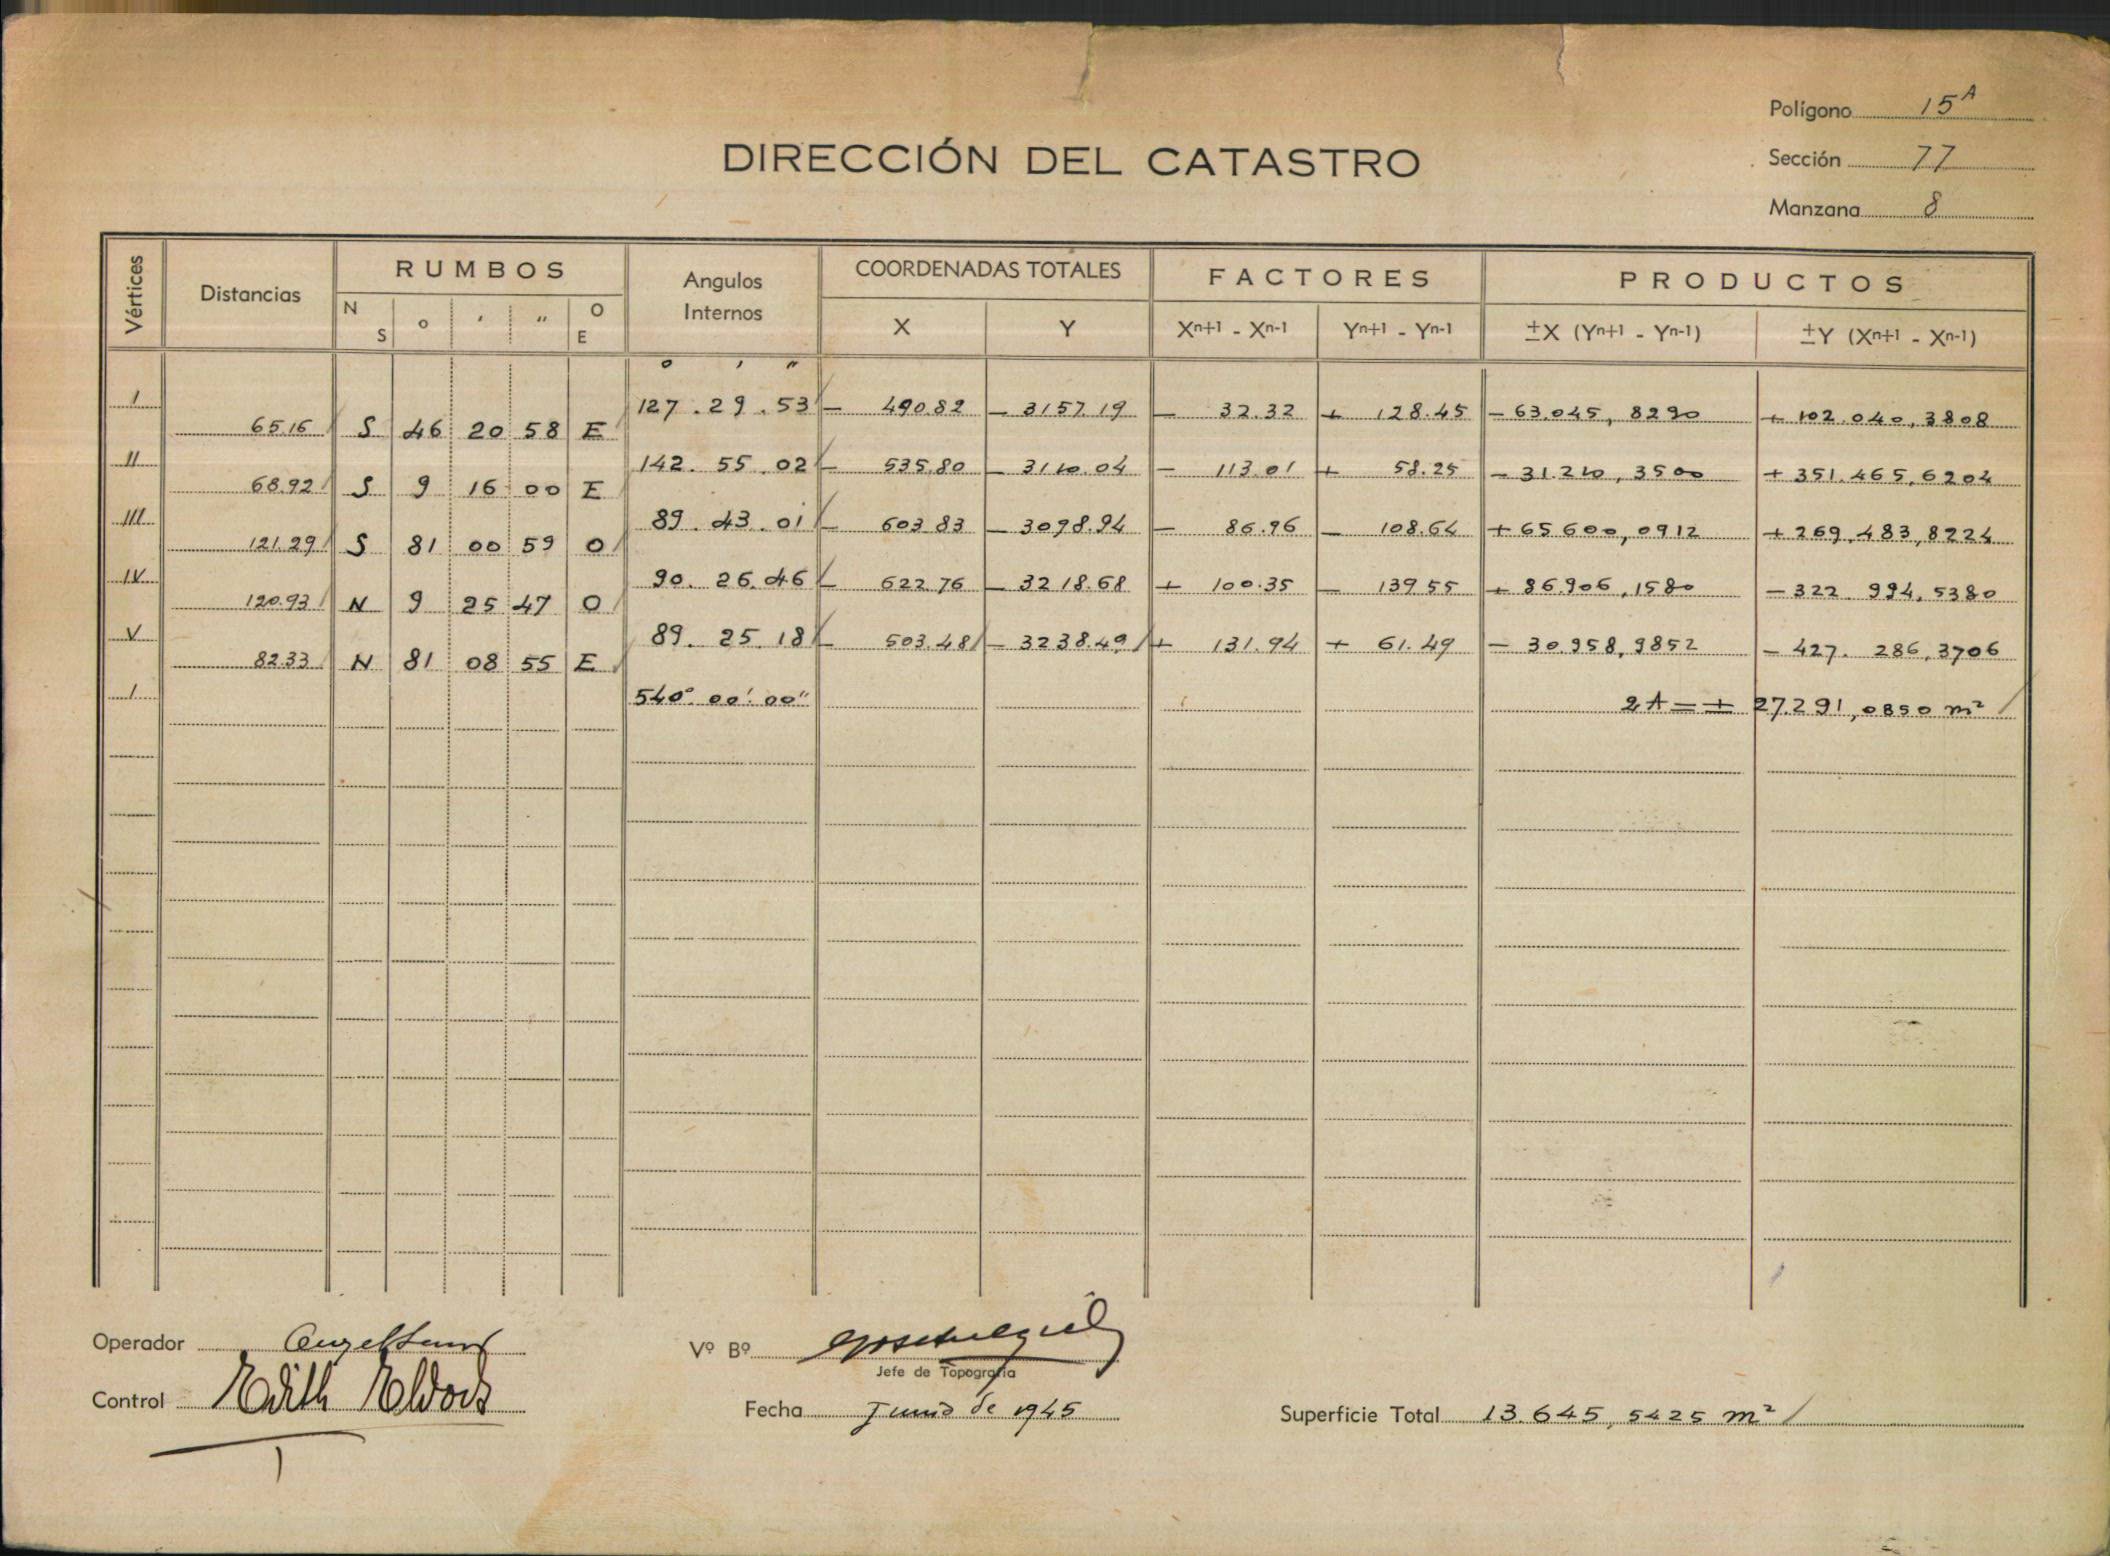 Polígono 15 A
DIRECCIÓN DEL CATASTRO
Sección 77
Manzana 8
Vértices Distancias RUMBOS Angulos Internos COORDENADAS TOTALES FACTORES PRODUCTOS
N S o ' " O E X Y Xn+1 - Xn-1 Yn+1 - Yn-1 ±X (Yn+1 - Yn-1) ±Y (Xn+1 - Xn-1)
o ' "
I 127.29.53 - 490.82 - 3157.19 - 32.32 + 128.45 - 63.045,8290 + 102.040,3808
65.16 S 46 20 58 E
II 142.55.02 - 535.80 - 3110.04 - 113.01 + 58.25 - 31.210,3500 + 351.465,6204
68.92 S 9 16 00 E
III 89.43.01 - 603.83 - 3098.94 - 86.96 - 108.64 + 65.600,0912 + 269.483,8224
121.29 S 81 00 59 O
IV 90.26.46 - 622.76 - 3218.68 + 100.35 - 139.55 + 86.906,1580 - 322.994,5380
120.93 N 9 25 47 O
V 89.25.18 - 503.48 - 3238.49 + 131.94 + 61.49 - 30.958,9852 - 427.286,3706
82.33 N 81 08 55 E
I 540° 00' 00" 2A = + 27.291,0850 m²
Operador
Vº Bº
Jefe de Topografía
Control Edith
Fecha Junio de 1945
Superficie Total 13.645,5425 m²